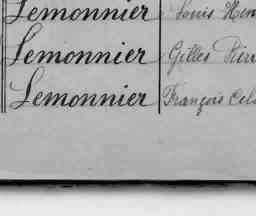 Lemonnier Louis Hen
Lemonnier Gilles Pierr
Lemonnier François Cel